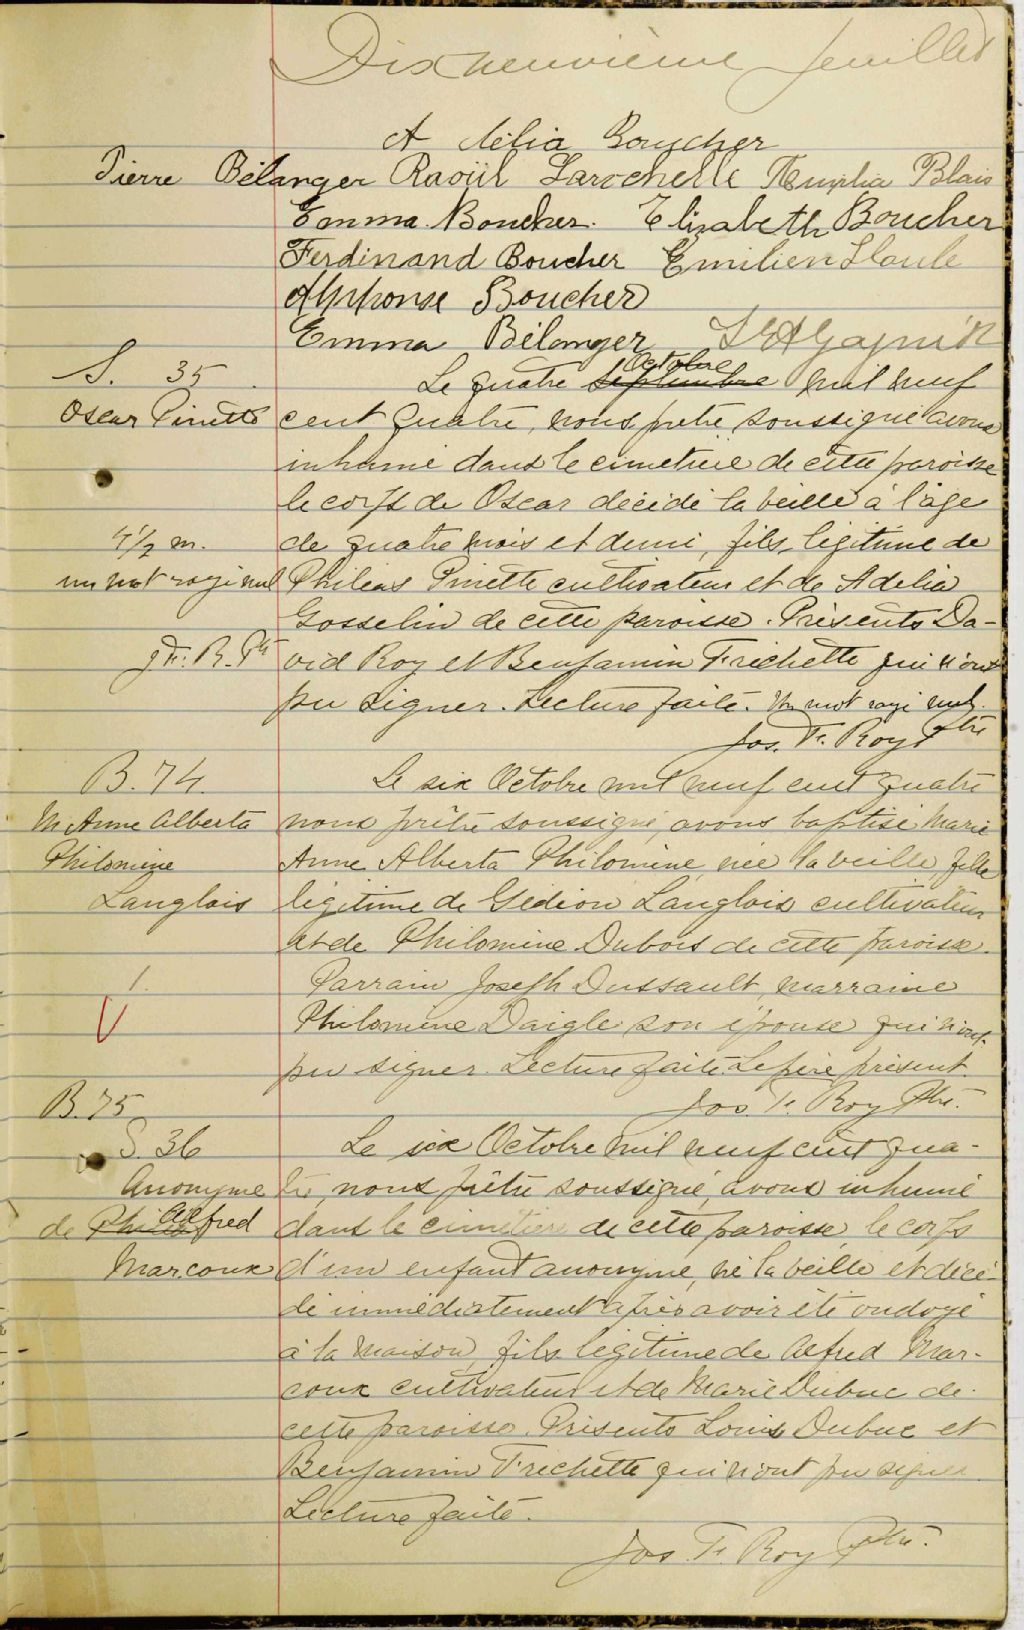 Dixneuvième feuillet
A Délia Boucher
Pierre Bélanger Raoül Larochelle Blais
Emma Boucher. Elizabeth Boucher
Ferdinand Boucher Emilien
Alphonse Boucher
Emma Bélanger
S. 35
Oscar Pinette
4½ m.
un mot rayé nul
J. F. R. Ptr
Octobre
Le quatre septembre mil neuf
cent quatre, nous, prêtre soussigné avons
inhumé dans le cimetière de cette paroisse
le corps de Oscar décédé la veille à l'âge
de quatre mois et demi, fils légitime de
Philéas Pinette cultivateur et de Adélia
Gosselin de cette paroisse. Présents Da-
vid Roy et Benjamin Frechette qui n'ont
pu signer. Lecture faite. Un mot rayé nul.
Jos. F. Roy Ptre
B. 74.
M. Anne Alberta
Philomène
Langlois
1.
V
Le six Octobre mil neuf cent quatre
nous prêtre soussigné, avons baptisé Marie
Anne Alberta Philomène, née la veille, fille
légitime de Gédéon Langlois cultivateur
et de Philomène Dubois de cette paroisse.
Parrain Joseph Dussault, marraine
Philomène Daigle son épouse qui n'ont
pu signer. Lecture faite. Le père présent.
Jos. F. Roy Ptre.
B. 75
S. 36
Anonyme
de Philias Alfred
Marcoux
Le six Octobre mil neuf cent qua-
tre, nous prêtre soussigné, avons inhumé
dans le cimetière de cette paroisse, le corps
d'un enfant anonyme, né la veille et décé-
dé immédiatement après avoir été ondoyé
à la maison, fils légitime de Alfred Mar-
coux cultivateur et de Marie Dubuc de
cette paroisse. Présents Louis Dubuc et
Benjamin Frechette qui n'ont pu signer.
Lecture faite.
Jos. F. Roy Ptre.